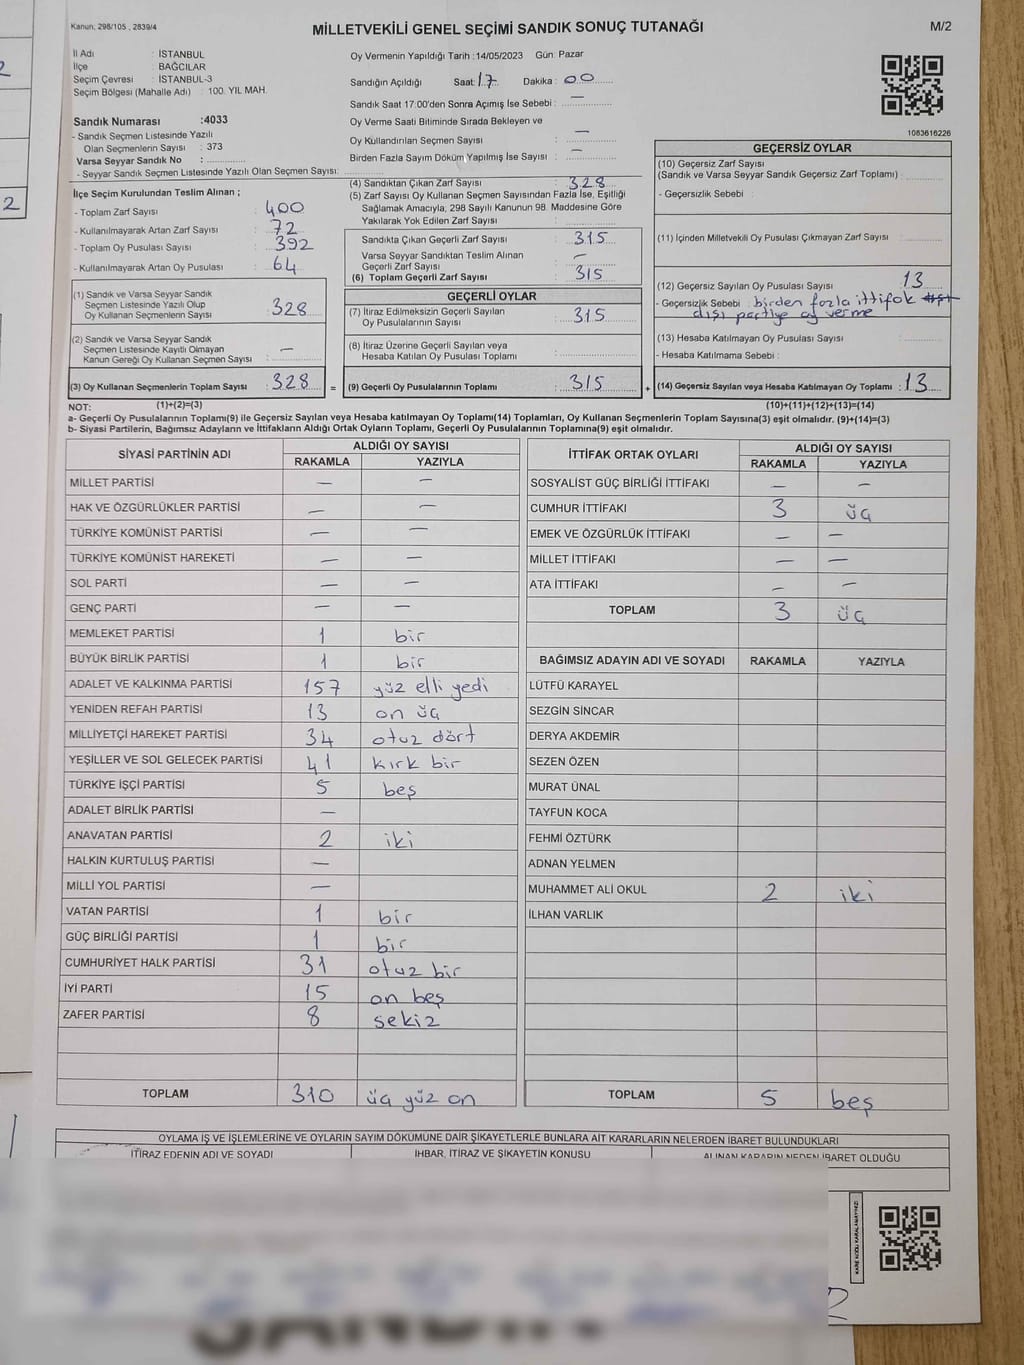 Kanun, 298/105 , 2839/4
MİLLETVEKİLİ GENEL SEÇİMİ SANDIK SONUÇ TUTANAĞI
M/2
İl Adı : İSTANBUL
İlçe : BAĞCILAR
Seçim Çevresi : İSTANBUL-3
Seçim Bölgesi (Mahalle Adı) : 100. YIL MAH.
Oy Vermenin Yapıldığı Tarih :14/05/2023 Gün: Pazar
Sandığın Açıldığı Saat: 17 Dakika : 00
Sandık Saat 17:00'den Sonra Açımış İse Sebebi : —
Oy Verme Saati Bitiminde Sırada Bekleyen ve
Oy Kullandırılan Seçmen Sayısı : —
Birden Fazla Sayım Döküm Yapılmış İse Sayısı : —
1083616226
Sandık Numarası :4033
- Sandık Seçmen Listesinde Yazılı
Olan Seçmenlerin Sayısı : 373
Varsa Seyyar Sandık No :
- Seyyar Sandık Seçmen Listesinde Yazılı Olan Seçmen Sayısı:
İlçe Seçim Kurulundan Teslim Alınan ;
- Toplam Zarf Sayısı : 400
- Kullanılmayarak Artan Zarf Sayısı : 72
- Toplam Oy Pusulası Sayısı : 392
- Kullanılmayarak Artan Oy Pusulası : 64
(1) Sandık ve Varsa Seyyar Sandık
Seçmen Listesinde Yazılı Olup
Oy Kullanan Seçmenlerin Sayısı : 328
(2) Sandık ve Varsa Seyyar Sandık
Seçmen Listesinde Kayıtlı Olmayan
Kanun Gereği Oy Kullanan Seçmen Sayısı : —
(3) Oy Kullanan Seçmenlerin Toplam Sayısı : 328 =
(1)+(2)=(3)
(4) Sandıktan Çıkan Zarf Sayısı : 328
(5) Zarf Sayısı Oy Kullanan Seçmen Sayısından Fazla İse, Eşitliği
Sağlamak Amacıyla, 298 Sayılı Kanunun 98. Maddesine Göre
Yakılarak Yok Edilen Zarf Sayısı :
Sandıkta Çıkan Geçerli Zarf Sayısı : 315
Varsa Seyyar Sandıktan Teslim Alınan
Geçerli Zarf Sayısı : —
(6) Toplam Geçerli Zarf Sayısı : 315
GEÇERLİ OYLAR
(7) İtiraz Edilmeksizin Geçerli Sayılan
Oy Pusulalarının Sayısı : 315
(8) İtiraz Üzerine Geçerli Sayılan veya
Hesaba Katılan Oy Pusulası Toplamı :
(9) Geçerli Oy Pusulalarının Toplamı : 315 +
GEÇERSİZ OYLAR
(10) Geçersiz Zarf Sayısı
(Sandık ve Varsa Seyyar Sandık Geçersiz Zarf Toplamı) :
- Geçersizlik Sebebi :
(11) İçinden Milletvekili Oy Pusulası Çıkmayan Zarf Sayısı :
(12) Geçersiz Sayılan Oy Pusulası Sayısı : 13
- Geçersizlik Sebebi : birden fazla ittifak
dışı partiye oy verme
(13) Hesaba Katılmayan Oy Pusulası Sayısı :
- Hesaba Katılmama Sebebi :
(14) Geçersiz Sayılan veya Hesaba Katılmayan Oy Toplamı : 13
(10)+(11)+(12)+(13)=(14)
NOT:
a- Geçerli Oy Pusulalarının Toplamı(9) ile Geçersiz Sayılan veya Hesaba katılmayan Oy Toplamı(14) Toplamları, Oy Kullanan Seçmenlerin Toplam Sayısına(3) eşit olmalıdır. (9)+(14)=(3)
b- Siyasi Partilerin, Bağımsız Adayların ve İttifakların Aldığı Ortak Oyların Toplamı, Geçerli Oy Pusulalarının Toplamına(9) eşit olmalıdır.
SİYASİ PARTİNİN ADI ALDIĞI OY SAYISI
RAKAMLA YAZIYLA
MİLLET PARTİSİ — —
HAK VE ÖZGÜRLÜKLER PARTİSİ — —
TÜRKİYE KOMÜNİST PARTİSİ — —
TÜRKİYE KOMÜNİST HAREKETİ — —
SOL PARTİ — —
GENÇ PARTİ — —
MEMLEKET PARTİSİ 1 bir
BÜYÜK BİRLİK PARTİSİ 1 bir
ADALET VE KALKINMA PARTİSİ 157 yüz elli yedi
YENİDEN REFAH PARTİSİ 13 on üç
MİLLİYETÇİ HAREKET PARTİSİ 34 otuz dört
YEŞİLLER VE SOL GELECEK PARTİSİ 41 kırk bir
TÜRKİYE İŞÇİ PARTİSİ 5 beş
ADALET BİRLİK PARTİSİ —
ANAVATAN PARTİSİ 2 iki
HALKIN KURTULUŞ PARTİSİ —
MİLLİ YOL PARTİSİ —
VATAN PARTİSİ 1 bir
GÜÇ BİRLİĞİ PARTİSİ 1 bir
CUMHURİYET HALK PARTİSİ 31 otuz bir
İYİ PARTİ 15 on beş
ZAFER PARTİSİ 8 sekiz
TOPLAM 310 üç yüz on
İTTİFAK ORTAK OYLARI ALDIĞI OY SAYISI
RAKAMLA YAZIYLA
SOSYALİST GÜÇ BİRLİĞİ İTTİFAKI — —
CUMHUR İTTİFAKI 3 üç
EMEK VE ÖZGÜRLÜK İTTİFAKI — —
MİLLET İTTİFAKI — —
ATA İTTİFAKI — —
TOPLAM 3 üç
BAĞIMSIZ ADAYIN ADI VE SOYADI RAKAMLA YAZIYLA
LÜTFÜ KARAYEL
SEZGİN SİNCAR
DERYA AKDEMİR
SEZEN ÖZEN
MURAT ÜNAL
TAYFUN KOCA
FEHMİ ÖZTÜRK
ADNAN YELMEN
MUHAMMET ALİ OKUL 2 iki
İLHAN VARLIK
TOPLAM 5 beş
OYLAMA İŞ VE İŞLEMLERİNE VE OYLARIN SAYIM DÖKÜMÜNE DAİR ŞİKAYETLERLE BUNLARA AİT KARARLARIN NELERDEN İBARET BULUNDUKLARI
İTİRAZ EDENİN ADI VE SOYADI İHBAR, İTİRAZ VE ŞİKAYETİN KONUSU ALINAN KARARIN NEDEN İBARET OLDUĞU
KARE KODU KARALAMAYINIZ!